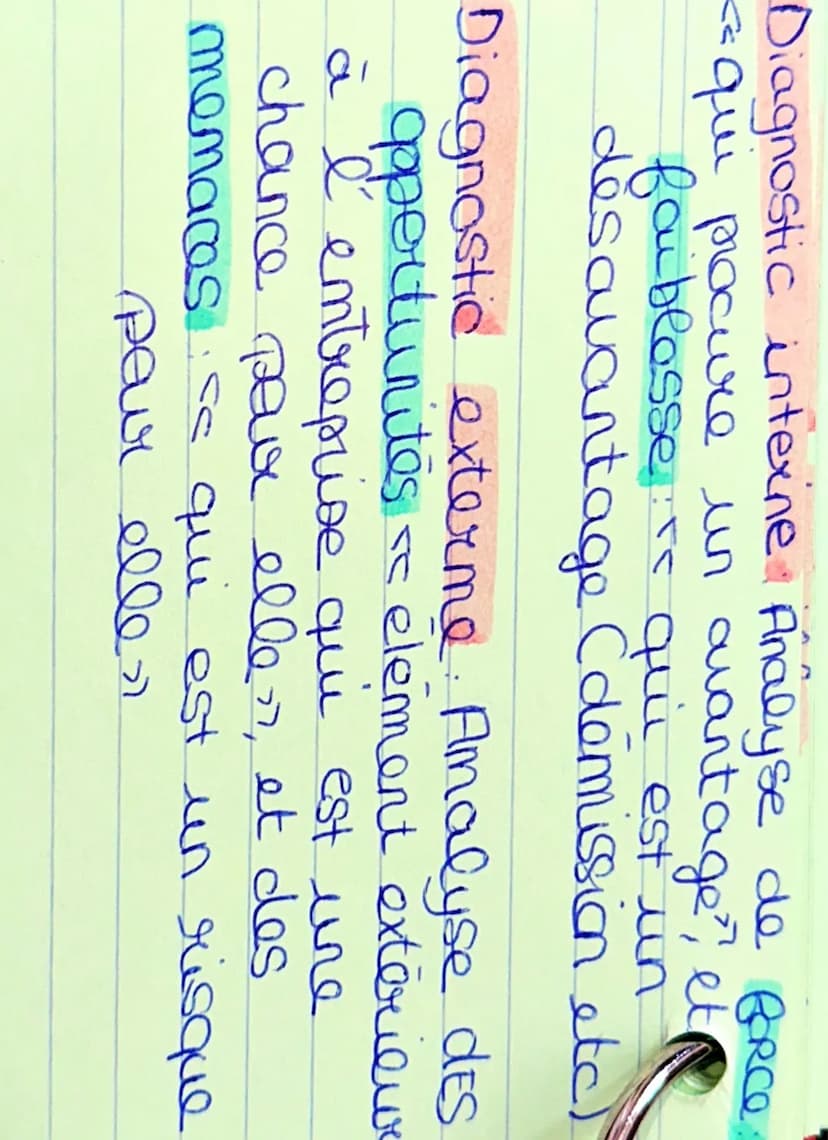 Diagnostic interne : Analyse de force
"qui procure un avantage", et
faiblesse : "qui est un
désavantage (démission etc)
Diagnostic externe : Analyse des
opportunités "élément extérieur
à l'entreprise qui est une
chance pour elle", et des
menaces : "qui est un risque
pour elle"